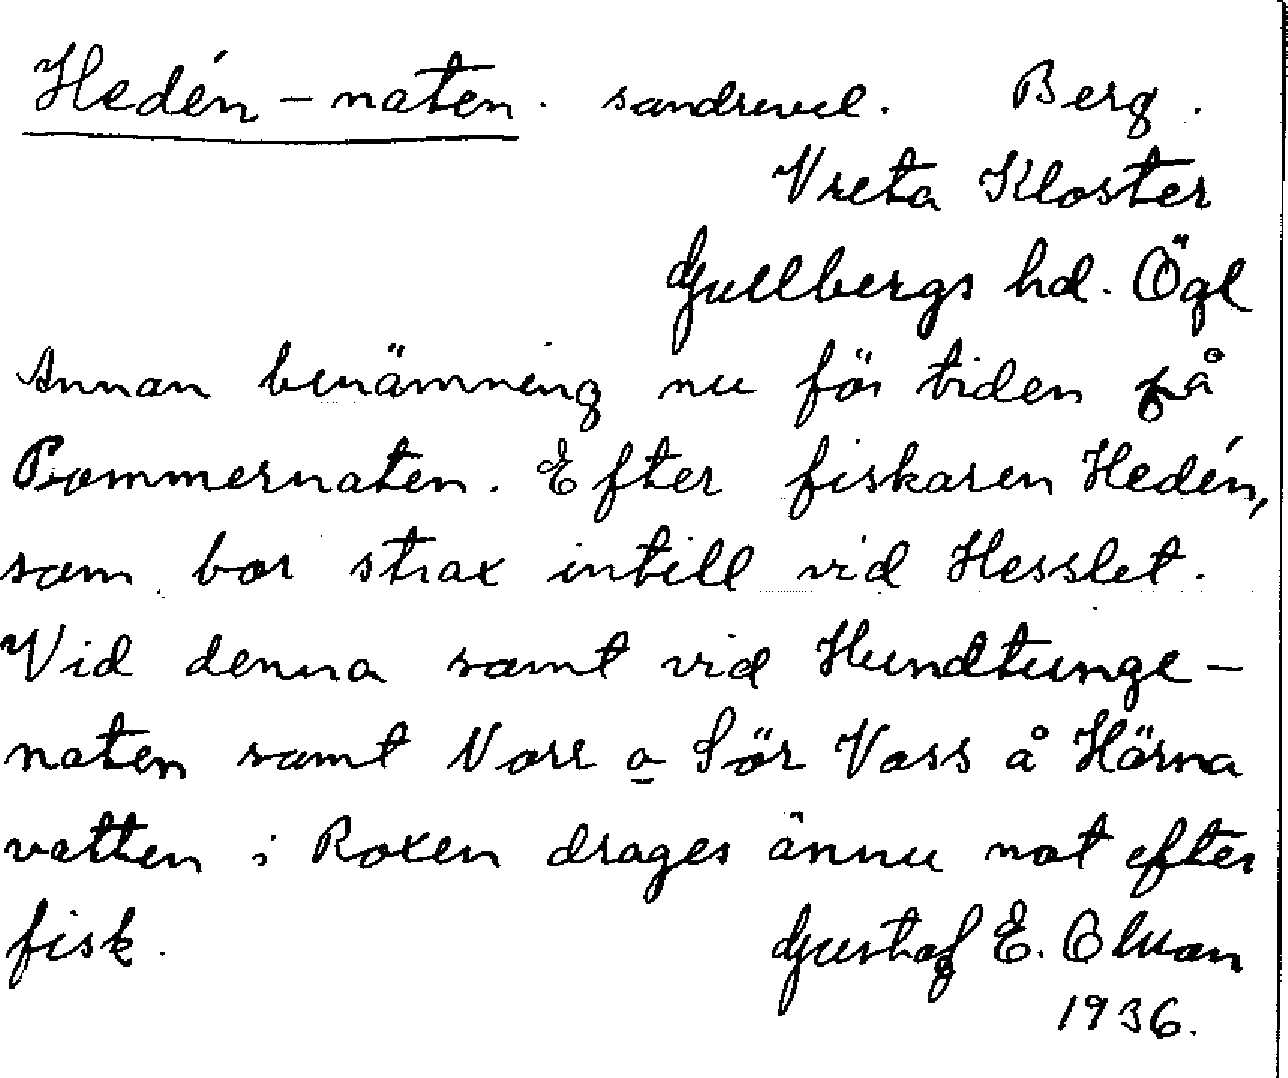 Hedén-naten. sandrevel. Berg.
Vreta Kloster
Gullbergs hd. Ögl
Annan benämning nu för tiden på
Pommernaten. Efter fiskaren Hedén,
som bor strax intill vid Hesslet.
Vid denna samt vid Hundtunge-
naten samt Norr o Sör Vass å Härna
vatten i Roxen drages ännu not efter
fisk. Gustaf E. Olsson
1936.